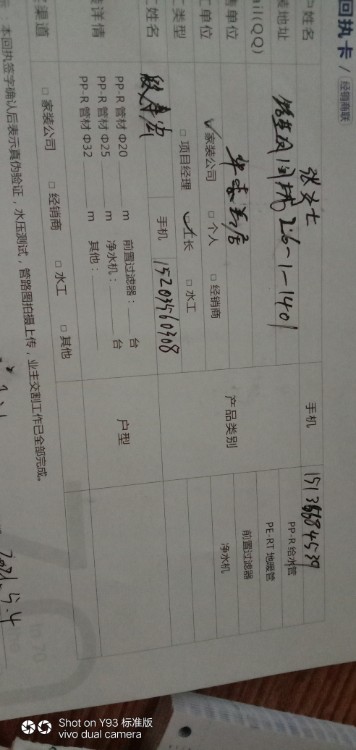 回执卡 / 经销商联
户姓名 张女士 手机 15136684539
装地址 26-1-1401
ail(QQ)
装单位 华 家装公司 □ 个人 □ 经销商
工单位
工类型 □ 项目经理 工长 □ 水工
工姓名 手机 15203560308
产品类别
PP-R 给水管
PE-RT 地暖管
前置过滤器
净水机
装详情
PP-R 管材 Φ20 m 前置过滤器： 台
PP-R 管材 Φ25 m 净水机： 台
PP-R 管材 Φ32 m 其他：
户型
渠道 □ 家装公司 □ 经销商 □ 水工 □ 其他
本回执签字确认后表示真伪验证，水压测试，管路图拍摄上传，业主交割工作已全部完成。
2021.5.4
Shot on Y93 标准版
vivo dual camera